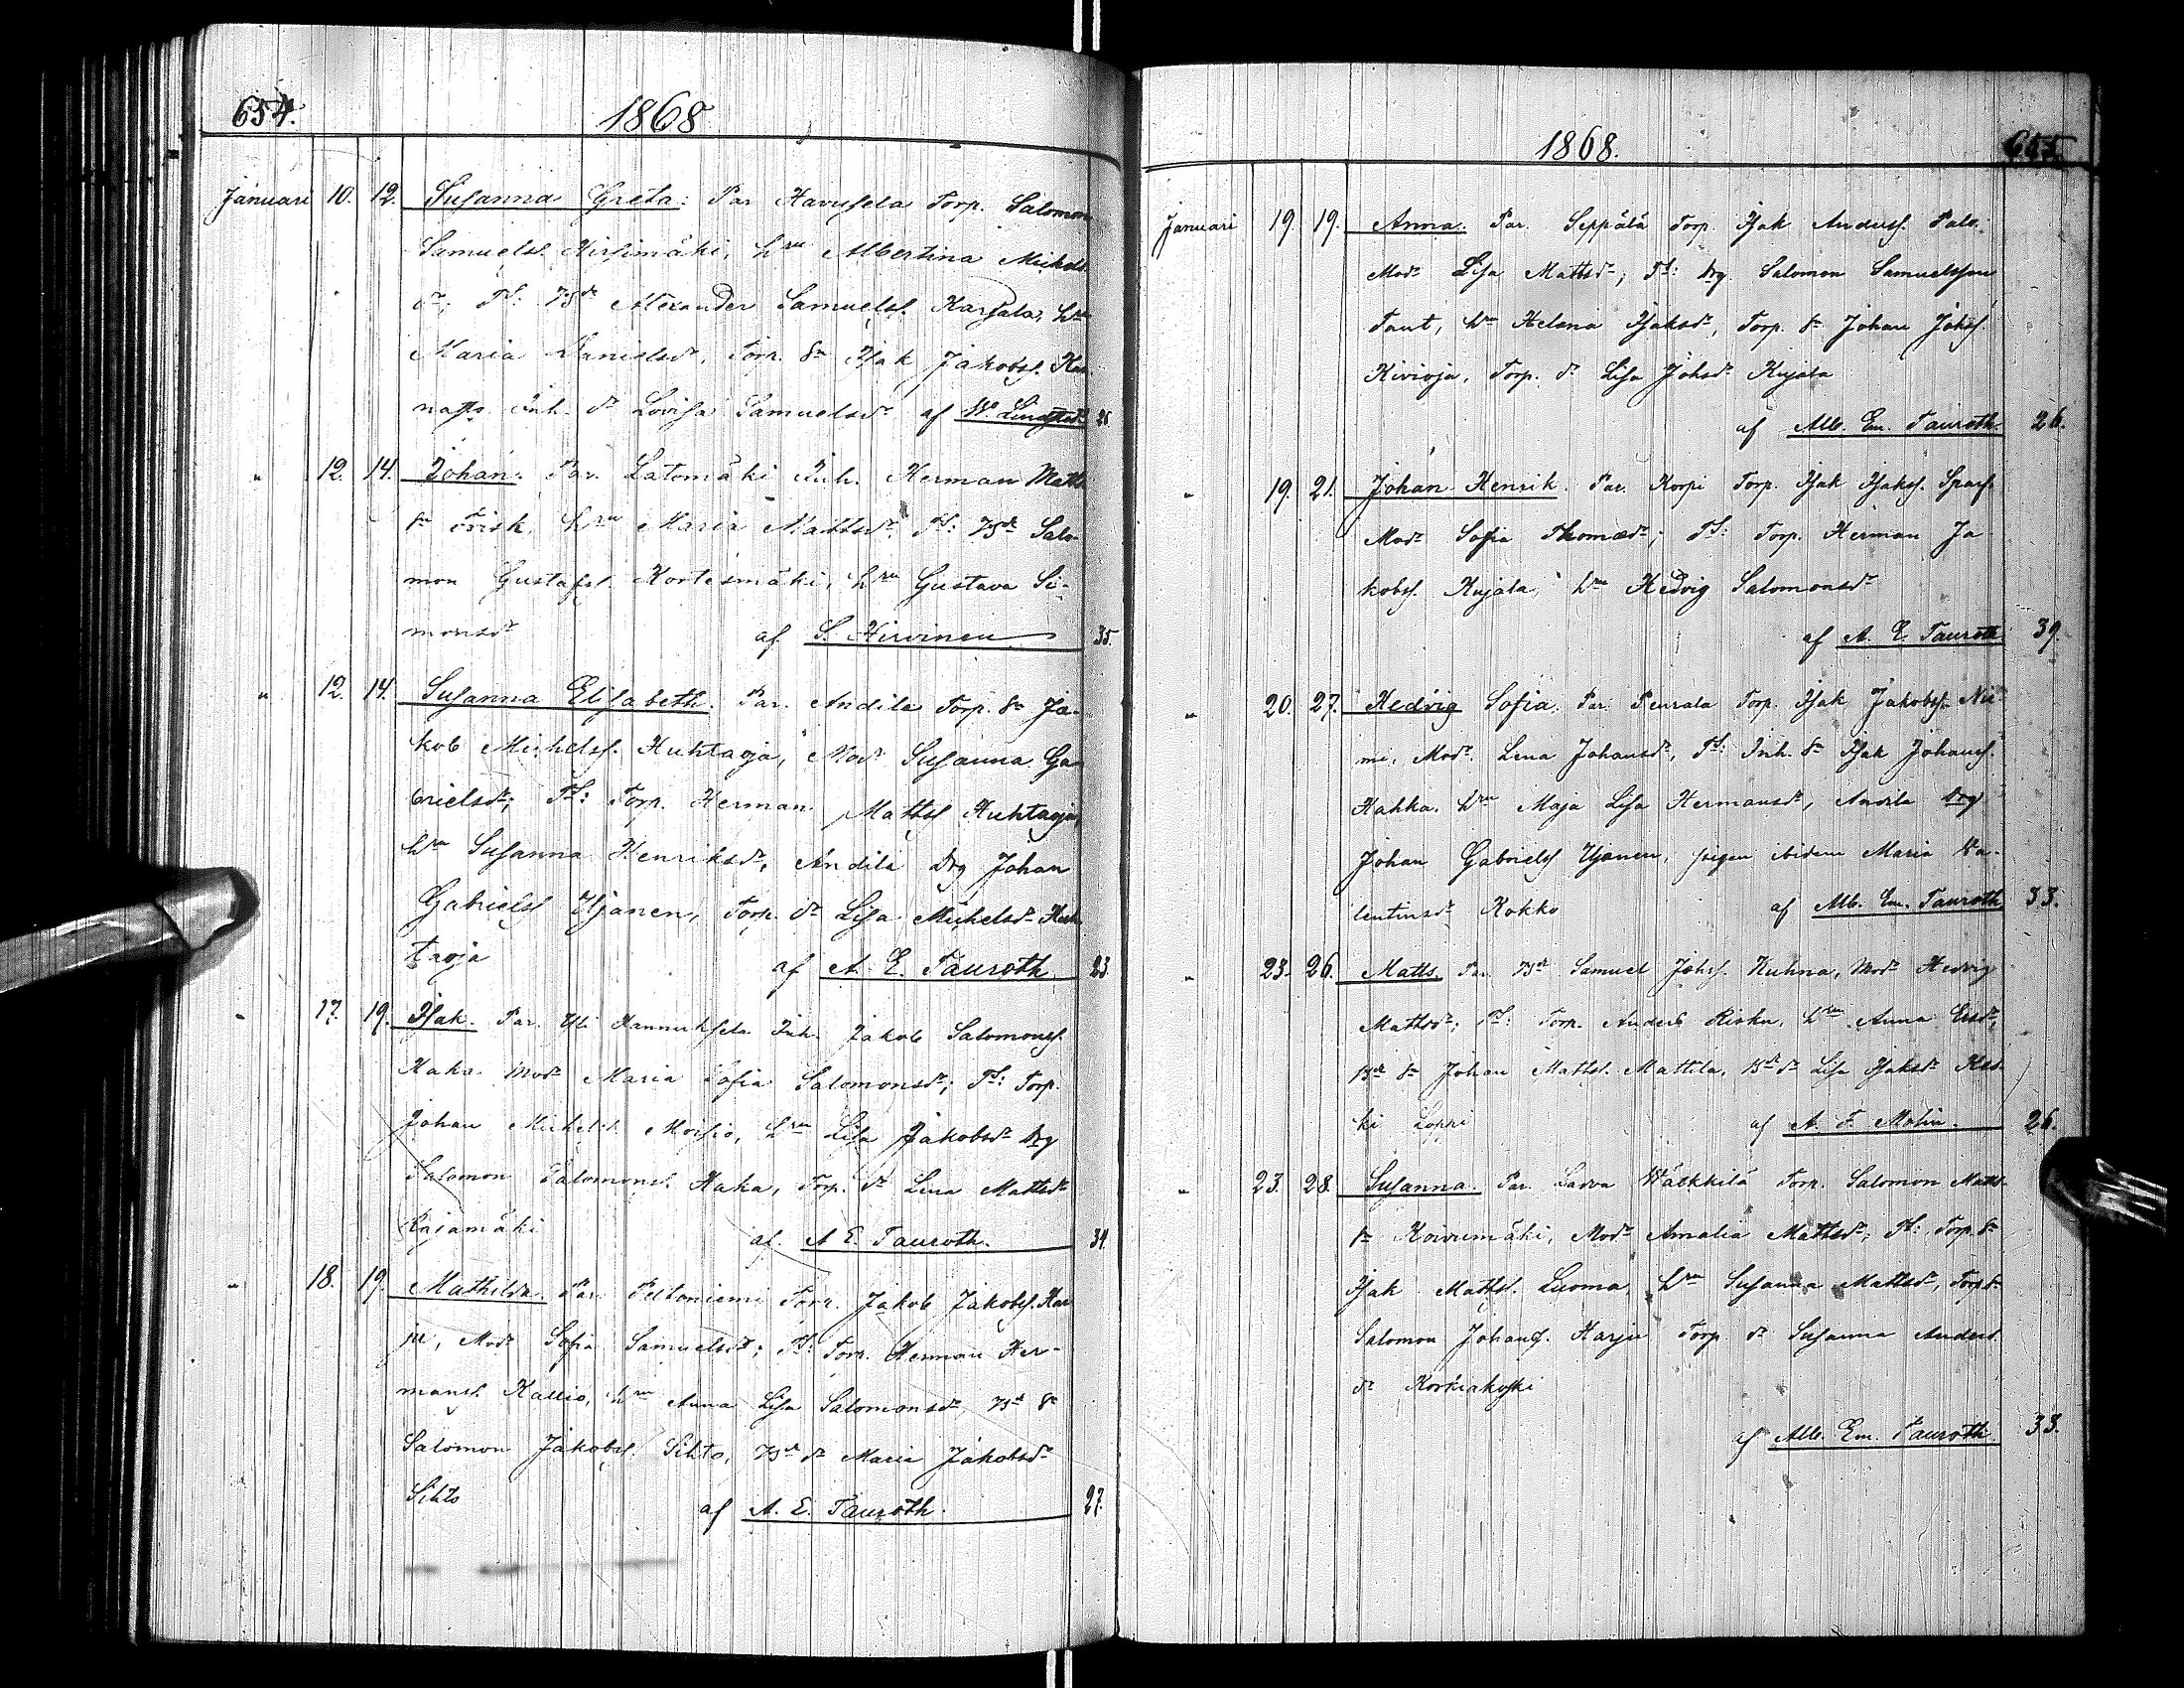 654.
1868
Januari 10. 12. Susanna Greta: Par Havusela Torp. Salomon
Samuelss. Hirsimäki, hru Albertina Michels
dr; Ts: Bd Alexander Samuelss. Karsala, hru
Maria Danielsdr, Torp. sn Isak Jakobss. Kar
Inh. dr Lovisa Samuelsdr af W. 26
" 12. 14. Johan. Par. Latomäki Inh. Herman Matts
sn Frisk, hru Maria Mattsdr, Ts: Bd Salo-
mon Gustafss. Kortesmäki, hru Gustava Si-
monsdr af S. Hirvinen 35.
" 12. 14. Susanna Elisabeth. Par. Andila Torp. sn Ja-
kob Michelss. Huhtaoja, Modr Susanna Ga
brielsdr; Ts: Torp. Herman Mattss Huhtaoja,
hru Susanna Henriksdr, Andila drg Johan
Gabrielss Ujanen, Torp. dr Lisa Michelsdr Huh
taoja af A. E. Tauroth 23
" 17. 19. Isak. Par. Yli Hannuksela Inh. Jakob Salomonss.
Haka Modr Maria Sofia Salomonsdr; Ts: Torp.
Johan Michelss. Moisio, hru Lisa Jakobsdr drg
Salomon Salomonss. Haka, Torp. dr Lena Mattsdr
Rajamäki af. A E. Tauroth. 34.
" 18. 19. Mathilda. Par. Peltoniemi Torp. Jakob Jakobss. Har
ju, Modr Sofia Samuelsdr; Ts: Torp. Herman Her-
manss. Kallio, hru Anna Lisa Salomonsdr, Bd sn
Salomon Jakobss. Sihto, Bd dr Maria Jakobsdr
Sihto af A. E. Tauroth. 27.
1868.
655.
Januari 19. 19. Anna. Par. Seppälä Torp. Isak Anderss. Palo.
Modr Lisa Mattsdr; Ts: drg. Salomon Samuelsson
Taut, hru Helena Isaksdr, Torp. sn Johan Johss.
Kivioja, Torp. dr Lisa Johsdr Kujala
af Alb. Em. Tauroth. 26.
" 19. 21. Johan Henrik. Par. Korpi Torp. Isak Isakss. Sparf.
Modr Sofia Thomædr; Ts: Torp. Herman Ja
kobss. Kujala, hru Hedvig Salomonsdr
af A. E. Tauroth 39.
" 20. 27. Hedvig Sofia. Par. Penrala Torp. Isak Jakobss. Nie
mi, Modr. Lena Johansdr, Ts: Inh. sn Isak Johanss.
Hahka. hru Maja Lisa Hermansdr, Andila drg
Johan Gabrielss Ujanen, pigan ibidem Maria Va-
lentinsdr Kokko af Alb. Em. Tauroth 33.
" 23. 26. Matts. Par. Bd Samuel Johss. Kuhna, Modr Hedvig
Mattsdr; Ts: Torp. Anders Risku, hru Anna Ersdr,
Bd sn Johan Mattss. Mattila, Bd dr Lisa Isaksdr Kes-
ki Loppi af A. F. Malin. 26.
" 23. 28. Susanna. Par. Ladva Wäkkilä Torp. Salomon Matts
sn Koivumäki, Modr Amalia Mattsdr, Ts: Torp. sn
Isak Mattss. Luoma, hru Susanna Mattsdr, Torp. sn
Salomon Johanss. Harju Torp. dr Susanna Anders
dr Korkiakoski
af Alb. Em. Tauroth 33.